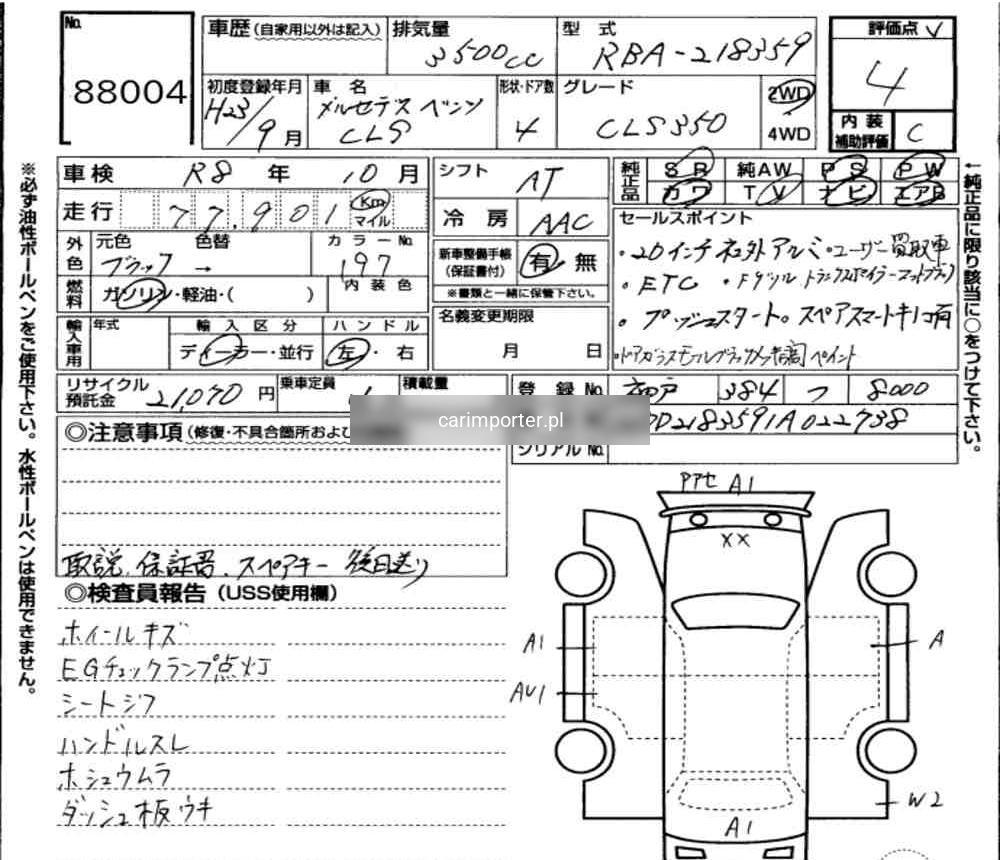 No.
88004
車歴(自家用以外は記入)
排気量
3500cc
型式
RBA-218359
評価点
4
初度登録年月
H23/9月
車名
メルセデスベンツ
CLS
形状・ドア数
4
グレード
CLS350
2WD
4WD
内装
補助評価
C
車検 R8年 10月
走行 77,901 Km マイル
シフト AT
冷房 AAC
純正品
SR 純AW PS PW
カワ TV ナビ エアB
外色
元色 ブラック
色替 →
カラーNo. 197
内装色
燃料 ガソリン・軽油・( )
新車整備手帳
(保証書付)
有 無
※書類と一緒に保管下さい。
セールスポイント
・20インチ社外アルミ・ユーザー買取車
・ETC
・プッシュスタート。スペアスマートキー有
輸入車用
年式
輸入区分
ディーラー・並行
ハンドル
左・右
名義変更期限
月 日
リサイクル預託金 21,070円
乗車定員
積載量
登録No. 384 つ 8000
carimporter.pl
D2183591A022738
シリアルNo.
◎注意事項(修復・不具合箇所およ
取説、保証書、スペアキー 後日送り
◎検査員報告(USS使用欄)
ホイールキズ
EGチェックランプ点灯
シートシワ
ハンドルスレ
ホシュウムラ
ダッシュ板ウキ
A1
XX
A1
A
AU1
W2
A1
※必ず油性ボールペンをご使用下さい。水性ボールペンは使用できません。
←純正品に限り該当に○をつけて下さい。